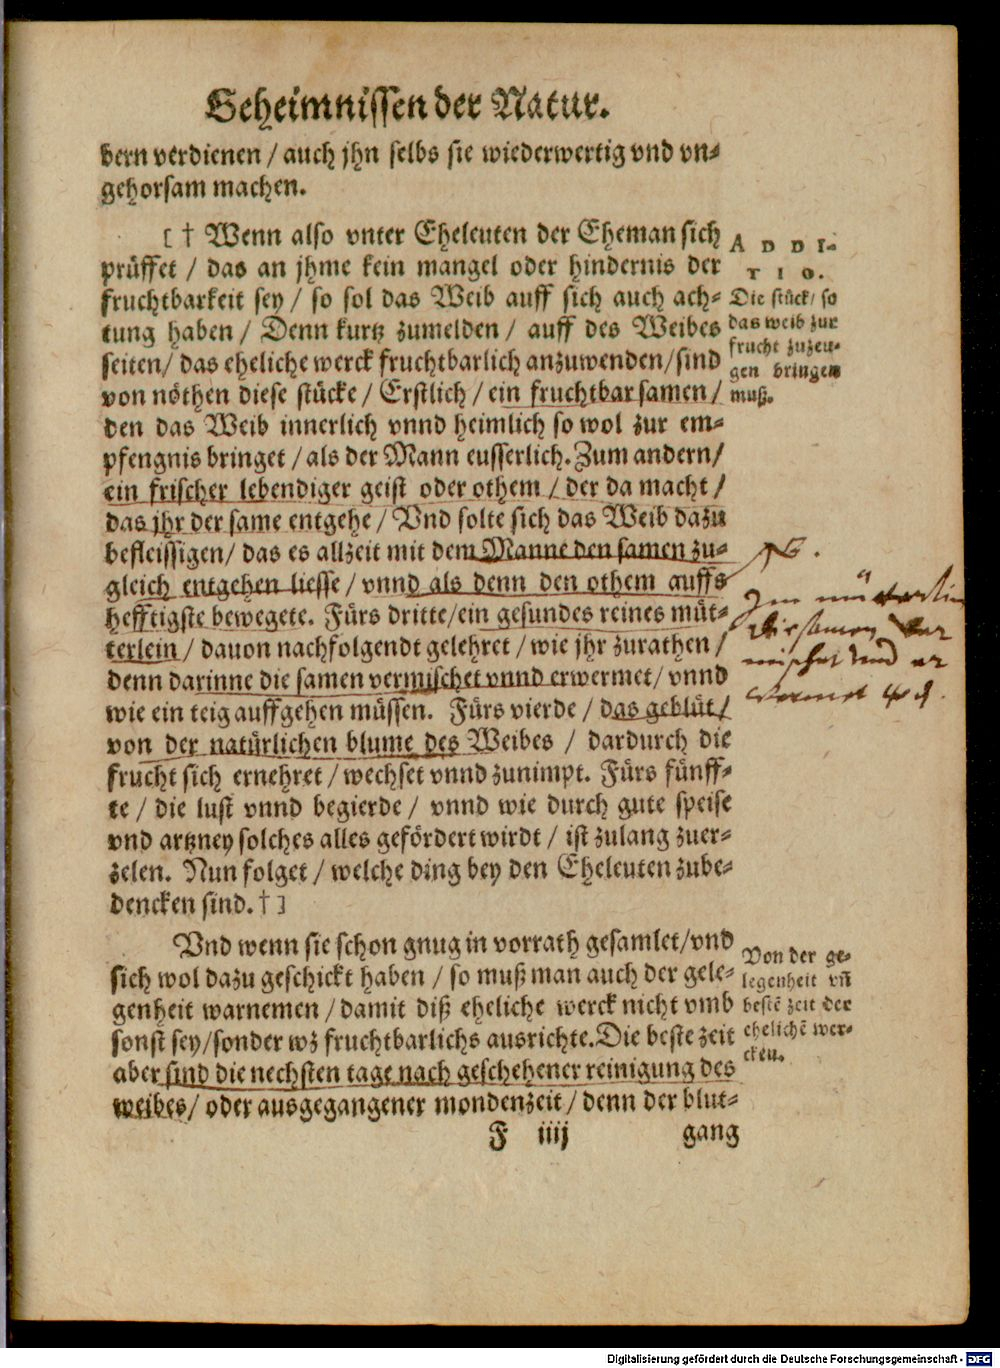 Geheimnissen der Natur.
dern verdienen / auch jhn selbs sie wiederwertig vnd vn⸗
gehorsam machen.
[ † Wenn also vnter Eheleuten der Eheman sich
prüffet / das an jhme kein mangel oder hindernis der
fruchtbarkeit sey / so sol das Weib auff sich auch ach⸗
tung haben / Denn kurtz zumelden / auff des Weibes
seiten / das eheliche werck fruchtbarlich anzuwenden / sind
von nöthen diese stücke / Erstlich / ein fruchtbar samen /
den das Weib innerlich vnnd heimlich so wol zur em⸗
pfengnis bringet / als der Mann eusserlich. Zum andern /
ein frischer lebendiger geist oder othem / der da macht /
das jhr der same entgehe / Vnd solte sich das Weib dazu
befleissigen / das es allzeit mit dem Manne den samen zu⸗
gleich entgehen liesse / vnnd als denn den othem auffs
hefftigste bewegete. Fürs dritte / ein gesundes reines müt⸗
terlein / dauon nachfolgendt gelehret / wie jhr zurathen /
denn darinne die samen vermischet vnnd erwermet / vnnd
wie ein teig auffgehen müssen. Fürs vierde / das geblüt /
von der natürlichen blume des Weibes / dardurch die
frucht sich ernehret / wechset vnnd zunimpt. Fürs fünff⸗
te / die lust vnnd begierde / vnnd wie durch gute speise
vnd artzney solches alles gefördert wirdt / ist zulang zuer⸗
zelen. Nun folget / welche ding bey den Eheleuten zube⸗
dencken sind. † ]
ADDI-
TIO.
Die stück / so
das weib zur
frucht zuzeu⸗
gen bringen
muß.
Vnd wenn sie schon gnug in vorrath gesamlet / vnd
sich wol dazu geschickt haben / so muß man auch der gele⸗
genheit warnemen / damit diß eheliche werck nicht vmb
sonst sey / sonder wz fruchtbarlichs ausrichte. Die beste zeit
aber sind die nechsten tage nach geschehener reinigung des
weibes / oder ausgegangener mondenzeit / denn der blut⸗
Von der ge⸗
legenheit vñ
bestē zeit der
ehelichē wer⸗
cken.
F iiij gang
Digitalisierung gefördert durch die Deutsche Forschungsgemeinschaft - DFG